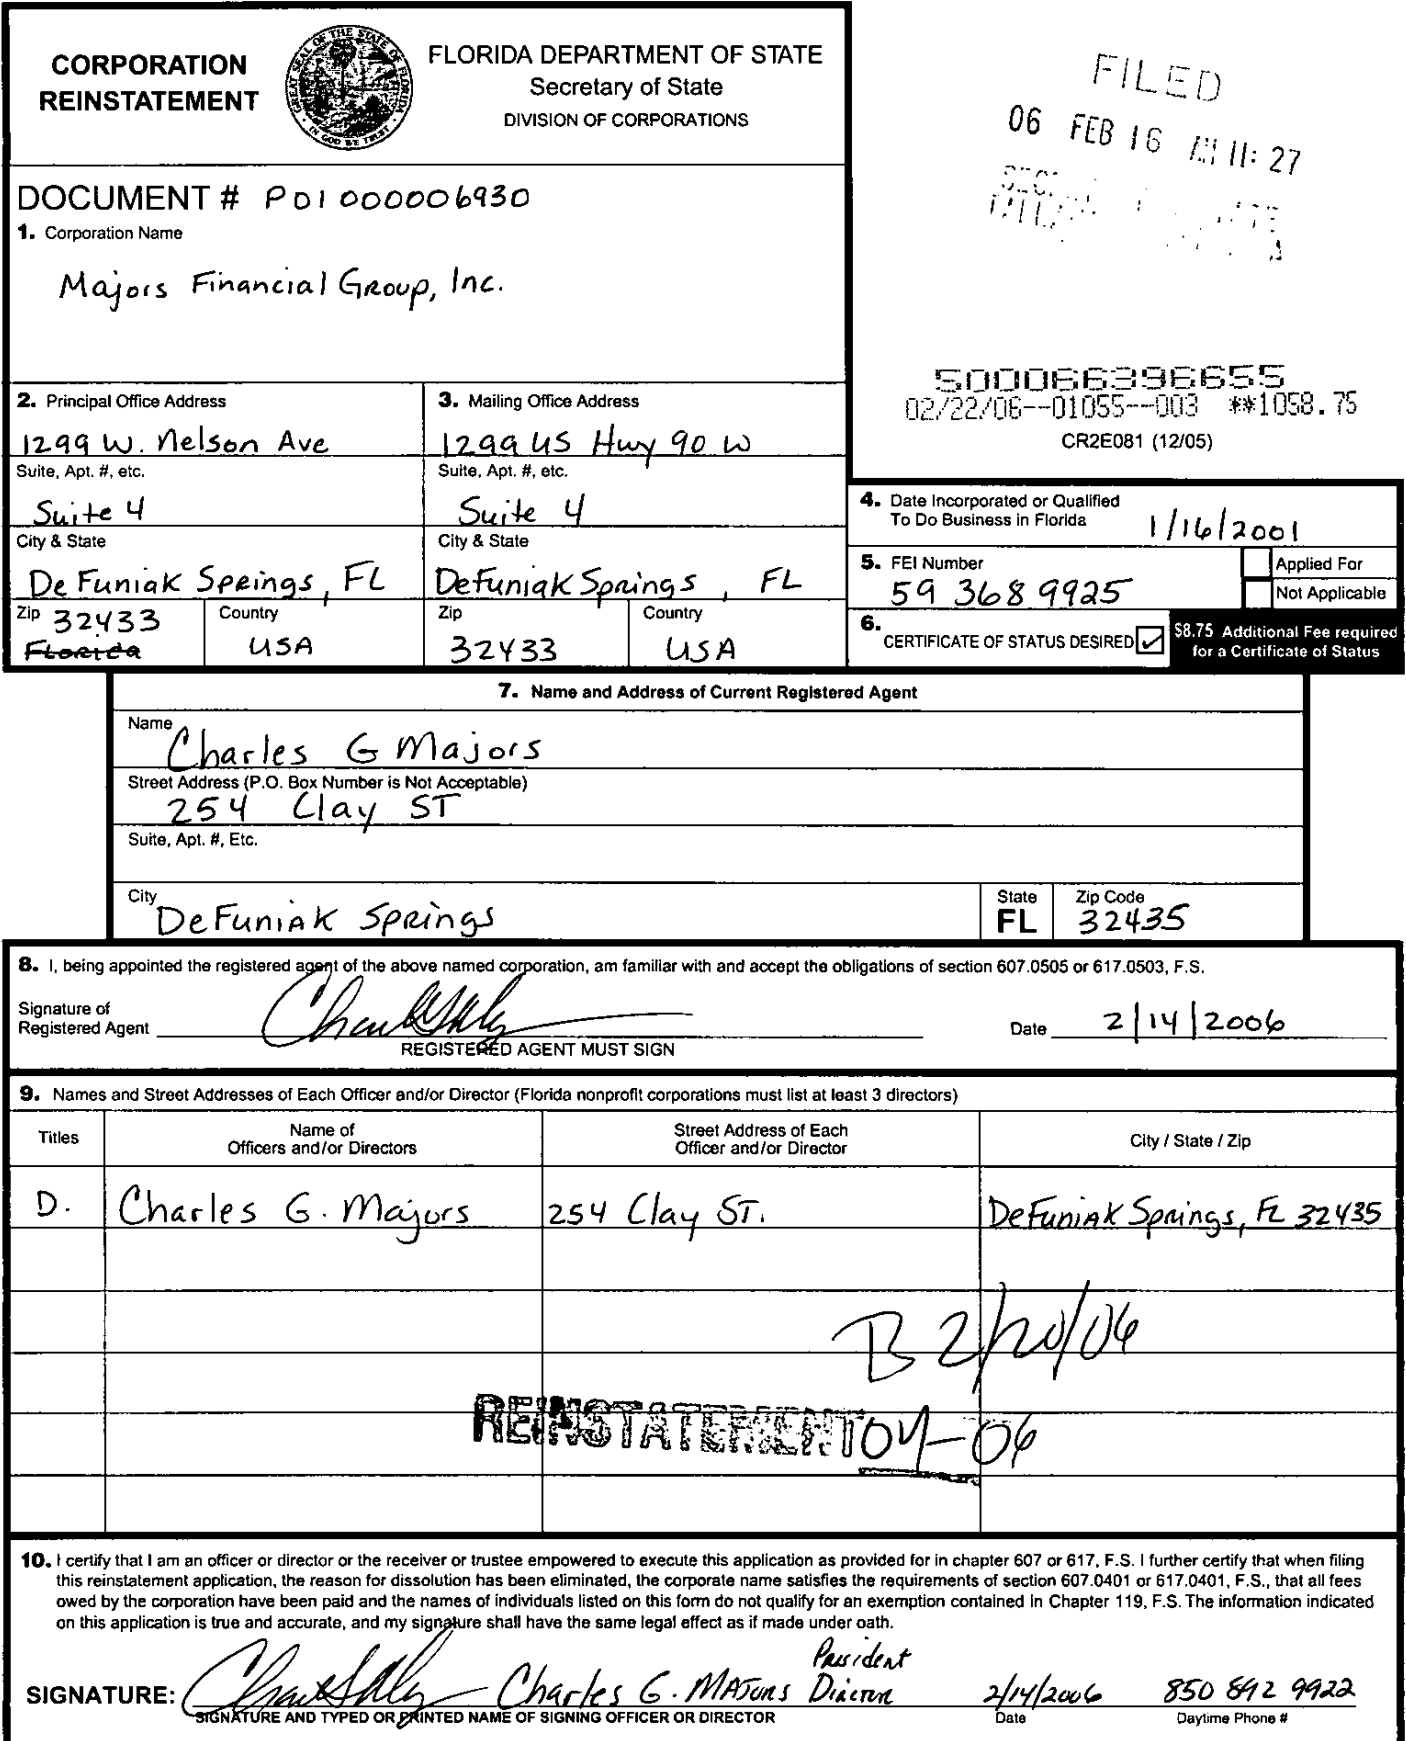 CORPORATION
REINSTATEMENT
GREAT SEAL OF THE STATE OF FLORIDA
IN GOD WE TRUST
FLORIDA DEPARTMENT OF STATE
Secretary of State
DIVISION OF CORPORATIONS
FILED
06 FEB 16 AM 11: 27
DOCUMENT # P01000006930
1. Corporation Name
Majors Financial Group, Inc.
500066396655
02/22/06--01055--003 **1058.75
CR2E081 (12/05)
2. Principal Office Address
1299 W. Nelson Ave
Suite, Apt. #, etc.
Suite 4
City & State
DeFuniak Springs, FL
Zip 32433
Florida
Country
USA
3. Mailing Office Address
1299 US Hwy 90 W
Suite, Apt. #, etc.
Suite 4
City & State
DeFuniak Springs, FL
Zip
32433
Country
USA
4. Date Incorporated or Qualified
To Do Business in Florida 1/16/2001
5. FEI Number
59 3689925
Applied For
Not Applicable
6. CERTIFICATE OF STATUS DESIRED ✓
$8.75 Additional Fee required
for a Certificate of Status
7. Name and Address of Current Registered Agent
Name
Charles G Majors
Street Address (P.O. Box Number is Not Acceptable)
254 Clay ST
Suite, Apt. #, Etc.
City
DeFuniak Springs
State
FL
Zip Code
32435
8. I, being appointed the registered agent of the above named corporation, am familiar with and accept the obligations of section 607.0505 or 617.0503, F.S.
Signature of
Registered Agent
REGISTERED AGENT MUST SIGN
Date 2/14/2006
9. Names and Street Addresses of Each Officer and/or Director (Florida nonprofit corporations must list at least 3 directors)
Titles
Name of
Officers and/or Directors
Street Address of Each
Officer and/or Director
City / State / Zip
D. Charles G. Majors 254 Clay ST. DeFuniak Springs, FL 32435
B 2/20/06
REINSTATEMENT 04-06
10. I certify that I am an officer or director or the receiver or trustee empowered to execute this application as provided for in chapter 607 or 617, F.S. I further certify that when filing
this reinstatement application, the reason for dissolution has been eliminated, the corporate name satisfies the requirements of section 607.0401 or 617.0401, F.S., that all fees
owed by the corporation have been paid and the names of individuals listed on this form do not qualify for an exemption contained in Chapter 119, F.S. The information indicated
on this application is true and accurate, and my signature shall have the same legal effect as if made under oath.
President
SIGNATURE: Charles G. Majors Director 2/14/2006 850 892 9922
SIGNATURE AND TYPED OR PRINTED NAME OF SIGNING OFFICER OR DIRECTOR
Date
Daytime Phone #